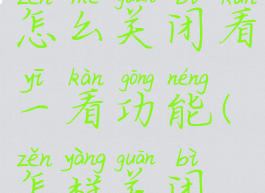 zěn me guān bì kàn
怎么关闭看
yī kàn gōng néng
一看功能(
zěn yàng guān bì
怎样关闭